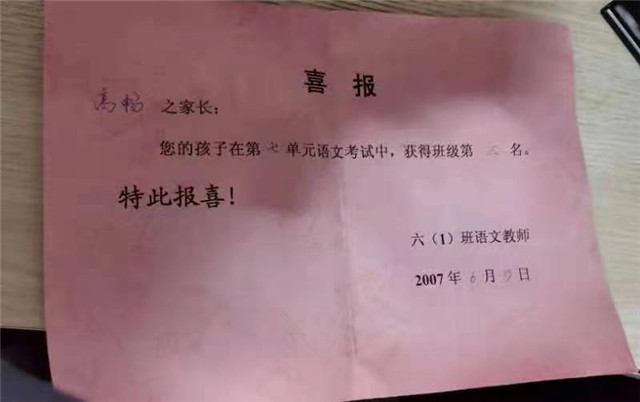 喜报
高畅 之家长:
您的孩子在第 七 单元语文考试中，获得班级第 三 名。
特此报喜！
六（1）班语文教师
2007 年 6 月 日